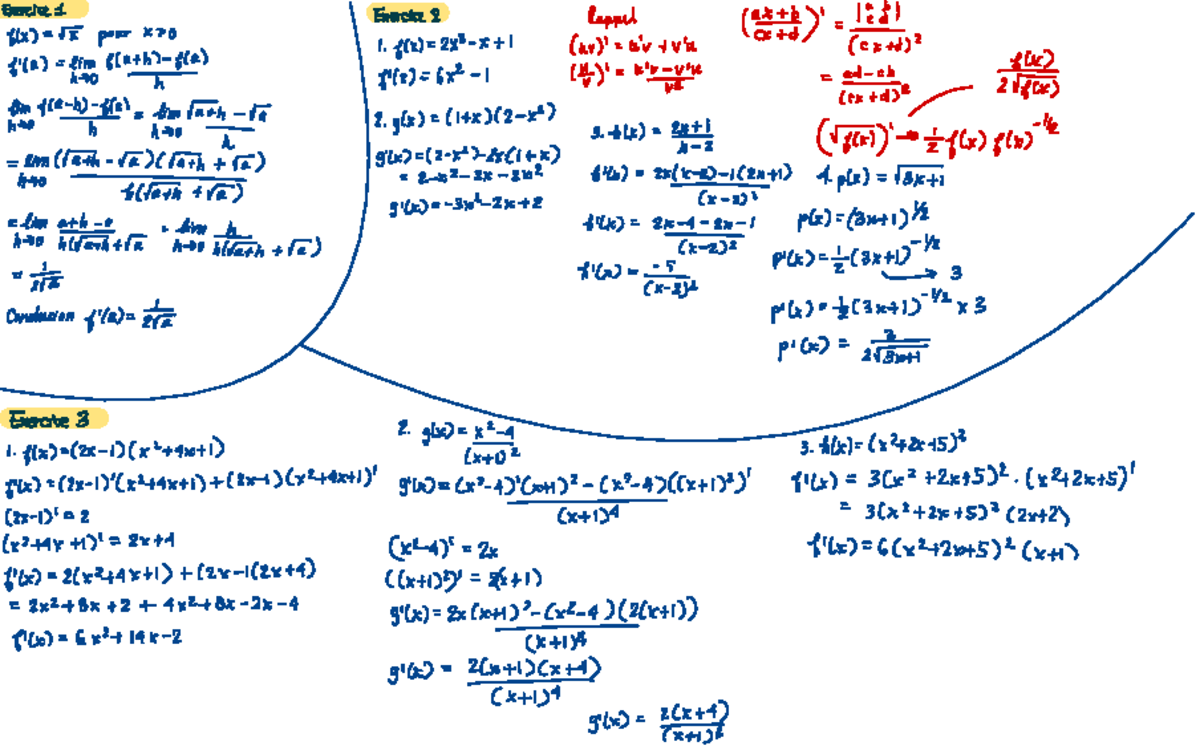 Exercice 1
f(x) = √x pour x>0
f'(a) = lim h→0 f(a+h)-f(a) / h
lim h→0 f(a-h)-f(a) / h = lim h→0 √a+h - √a / h
= lim h→0 (√a+h - √a)(√a+h + √a) / h(√a+h + √a)
= lim h→0 a+h-a / h(√a+h + √a = lim h→0 h / h(√a+h + √a)
= 1 / 2√a
Conclusion f'(a) = 1 / 2√a
Exercice 2
1. f(x) = 2x³ - x + 1
f'(x) = 6x² - 1
2. g(x) = (1+x)(2-x²)
g'(x) = (2-x²) - 2x(1+x)
= 2 - x² - 2x - 2x²
g'(x) = -3x² - 2x + 2
Rappel
(uv)' = u'v + v'u
(u/v)' = u'v - v'u / v²
(ax+b / cx+d)' = |a b c d| / (cx+d)²
= ad-cb / (cx+d)²
f(x) / 2√f(x)
(√f(x))' → 1/2 f(x) f(x)^-1/2
3. h(x) = 2x+1 / x-2
h'(x) = 2x(x-2) - 1(2x+1) / (x-2)²
h'(x) = 2x-4-2x-1 / (x-2)²
h'(x) = -5 / (x-2)²
4. p(x) = √3x+1
p(x) = (3x+1)^1/2
p'(x) = 1/2 (3x+1)^-1/2
→ 3
p'(x) = 1/2 (3x+1)^-1/2 × 3
p'(x) = 3 / 2√3x+1
Exercice 3
1. f(x) = (2x-1)(x²+4x+1)
f'(x) = (2x-1)'(x²+4x+1) + (2x-1)(x²+4x+1)'
(2x-1)' = 2
(x²+4x+1)' = 2x+4
f'(x) = 2(x²+4x+1) + (2x-1(2x+4)
= 2x²+8x+2 + 4x²+8x-2x-4
f'(x) = 6x² + 14x - 2
2. g(x) = x²-4 / (x+1)²
g'(x) = (x²-4)'(x+1)² - (x²-4)((x+1)²)' / (x+1)⁴
(x²-4)' = 2x
((x+1)²)' = 2(x+1)
g'(x) = 2x(x+1)² - (x²-4)(2(x+1)) / (x+1)⁴
g'(x) = 2(x+1)(x+4) / (x+1)⁴
g'(x) = 2(x+4) / (x+1)³
3. h(x) = (x²+2x+5)³
h'(x) = 3(x²+2x+5)² · (x²+2x+5)'
= 3(x²+2x+5)² (2x+2)
h'(x) = 6(x²+2x+5)² (x+1)